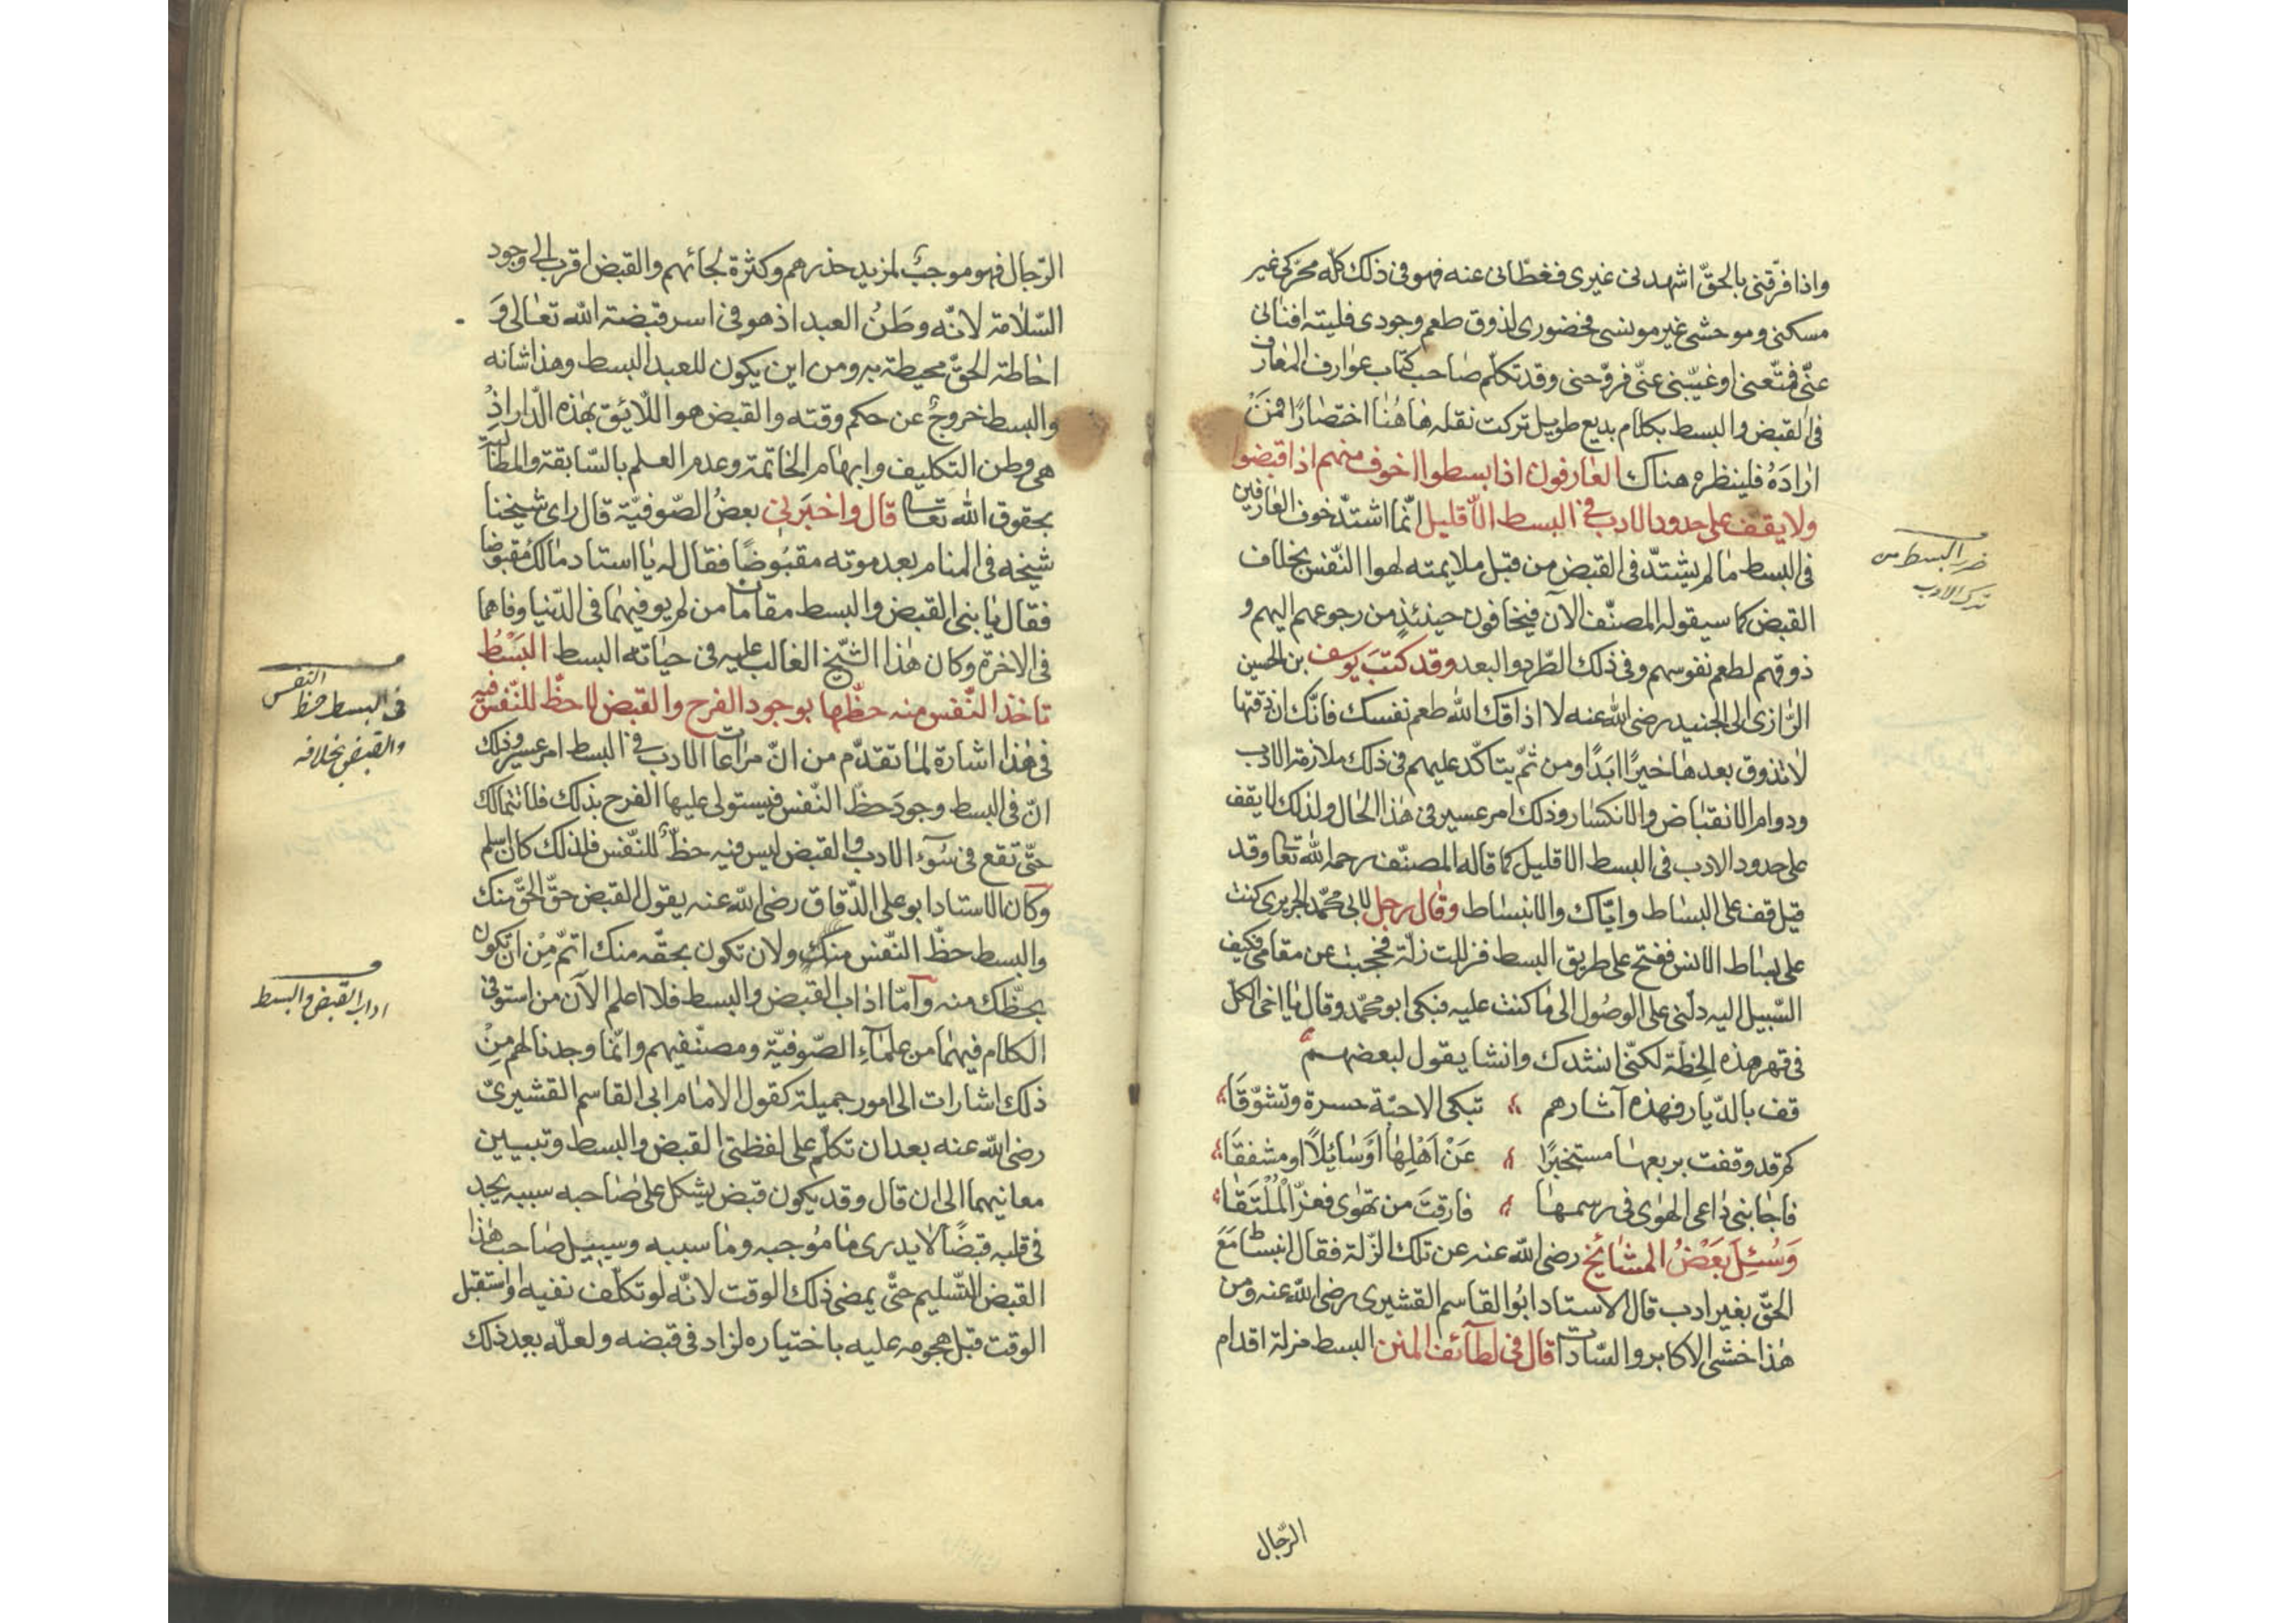 واذا فرّقنى بالحقّ اشهدنى غيرى فغطّانى عنه فهو فى ذلك كلّه محرّكى غير
مسكنى وموحشى غير مونسى فحضورى لذوق طعم وجودى فليته افنانى
عنّى فمتّعنى او غيّبنى عنّى فروّحنى وقد تكلّم صاحب كتاب عوارف المعارف
فى القبض والبسط بكلام بديع طويل تركت نقله هاهُنا اختصارًا فمَنْ
ارادَهُ فلينظره هناك العارفون اذا بسطوا اخوف منهم اذا قبضوا
ولا يقف على حدود الادب فى البسط الّا قليل انّما اشتدّ خوف العارفين
فى البسط ما لم يشتدّ فى القبض من قبل ملايمته لهوا النّفس بخلاف
القبض كما سيقوله المصنّف الآن فيخافون حينئذٍ من رجوعهم اليهم و
ذوقهم لطعم نفوسهم وفى ذلك الطّرد والبعد وقد كتَبَ يوسف بن الحسين
الرّازى الى الجنيد رضى اللّه عنه لا اذاقك اللّه طعم نفسك فانّك ان ذقتها
لا تذوق بعدها خيرًا ابدًا ومن ثمّ يتاكّد عليهم فى ذلك ملازمة الادب
ودوام الانقباض والانكسار وذلك امر عسير فى هذا الحال ولذلك لا يقف
على حدود الادب فى البسط الا قليل كما قاله المصنّف رحمه اللّه تعا وقد
قيل قف على البساط وايّاك والانبساط وقال رجل لابى محمّد الجريرى كنت
على بساط الانس ففتح على طريق البسط فزللت زلّة فحجبت عن مقامى فكيف
السّبيل اليه دلّنى على الوصُول الى ما كنت عليه فبكى ابو محمّد وقال يا اخى الكلّ
فى قهر هذه الخِطّة لكنّى انشدك وانشا يقول لبعضهم
قف بالدّيار فهذه آثارهم تبكى الاحبّة حسرة وتشوّقَا
كم قد وقفت بربعها مستخبرًا عَنْ اَهْلِهَا اَوْ سَائِلًا او مشفقَا
فاجابنى داعى الهوٰى فى رسمها فارقتَ من تهوٰى فعزّ الْمُلْتَقَا
وَسُئِلَ بَعْضُ المشائخ رضى اللّه عنه عن تلك الزّلّة فقال انبساط مَعَ
الحقّ بغير ادب قال الاستاد ابُوا القاسم القشيرى رضى اللّه عنه ومن
هٰذا خشى الاكابر والسّادات قال فى لطآئف المنن البسط مزلة اقدام
الرّجال
ضرر البسط من
ترك الادب
الرّجال فهو موجبٌ لمزيد حذرهم وكثرة لجائهم والقبض اقرب الى وجود
السّلامة لانّه وطَنُ العبد اذ هو فى اسر قبضة اللّه تعالى وَ
احاطة الحقّ محيطة به ومن اين يكون للعبد البسط وهذا شانه
والبسط خروجٌ عن حكم وقته والقبض هو اللّائق بهذه الدّار اذْ
هى وطن التكليف وابهام الخاتمة وعدم العلم بالسّابقة والمطالبة
بحقوق اللّه تعا قال واخبَرنى بعضُ الصّوفيّة قال راى شيخنا
شيخه فى المنام بعد موته مقبُوضًا فقال له يا استاد مالك مُقبوضا
فقال يا بنى القبض والبسط مقامان من لم يوفيهما فى الدّنيا وفاهما
فى الاخرة وكان هٰذا الشّيخ الغالب عليه فى حياته البسط البَسْطُ
تاخذ النّفس منه حظّها بوجود الفرح والقبض لا حظّ للنّفس فيه
فى هٰذا اشارة لما تقدّم من انّ مراعات الادب فى البسط امر عسير وذلك
انّ فى البسط وجودَ حظّ النّفس فيستولى عليها الفرح بذلك فلا تتمالك
حتّى تقع فى سُوٓء الادب والقبض ليس فيه حظّ للنّفس فلذلك كان اسلم
وكان الاستاد ابو على الدّقاق رضى اللّه عنه يقول القبض حقّ الحقّ منك
والبسط حظّ النّفس منك ولان تكون بحقّه منك اتمّ مِنْ ان تكون
بحظّك منه وآمّا اداب القبض والبسط فلا اعلم الآن من استوفى
الكلام فيهما من علمآءِ الصّوفيّة ومصنّفيهم وانّما وجدنا لهم مِنْ
ذلك اشارات الى امور جميلة كقول الامام ابى القاسم القشيرىّ
رضى اللّه عنه بعد ان تكلّم على لفظتى القبض والبسط وتبيين
معانيهما الى ان قال وقد يكون قبض يشكل على صاحبه سببه يجد
فى قلبه قبضًا لا يدرى ما مُوجبه وما سببه وسبيل صاحب هٰذا
القبض التّسليم حتّى يمضى ذلك الوقت لانّه لو تكلّف نفيه او استقبل
الوقت قبل هجومه عليه باختياره لزاد فى قبضه ولعلّه بعد ذلك
فى البسط حظ النفس
والقبض بخلافه
اداب القبض والبسط